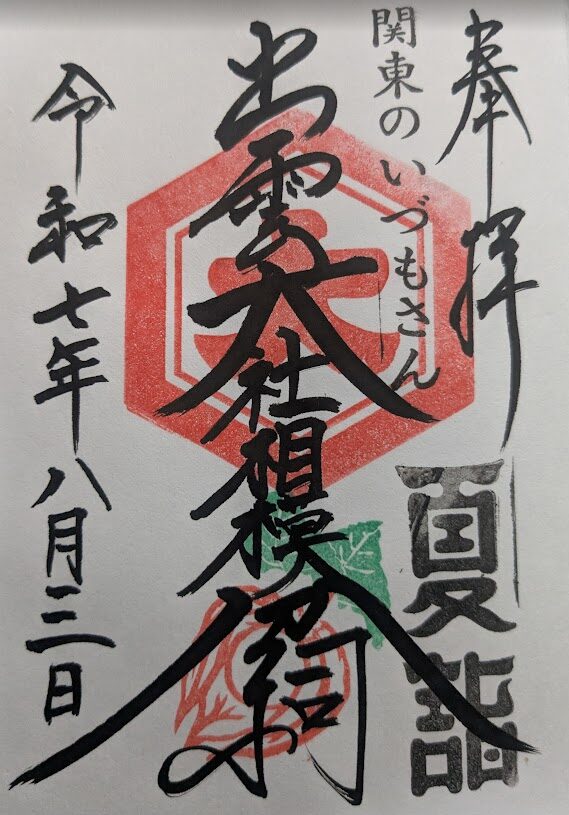 奉拝
夏詣
関東のいづもさん
出雲大社相模分祠
大
令和七年八月三日